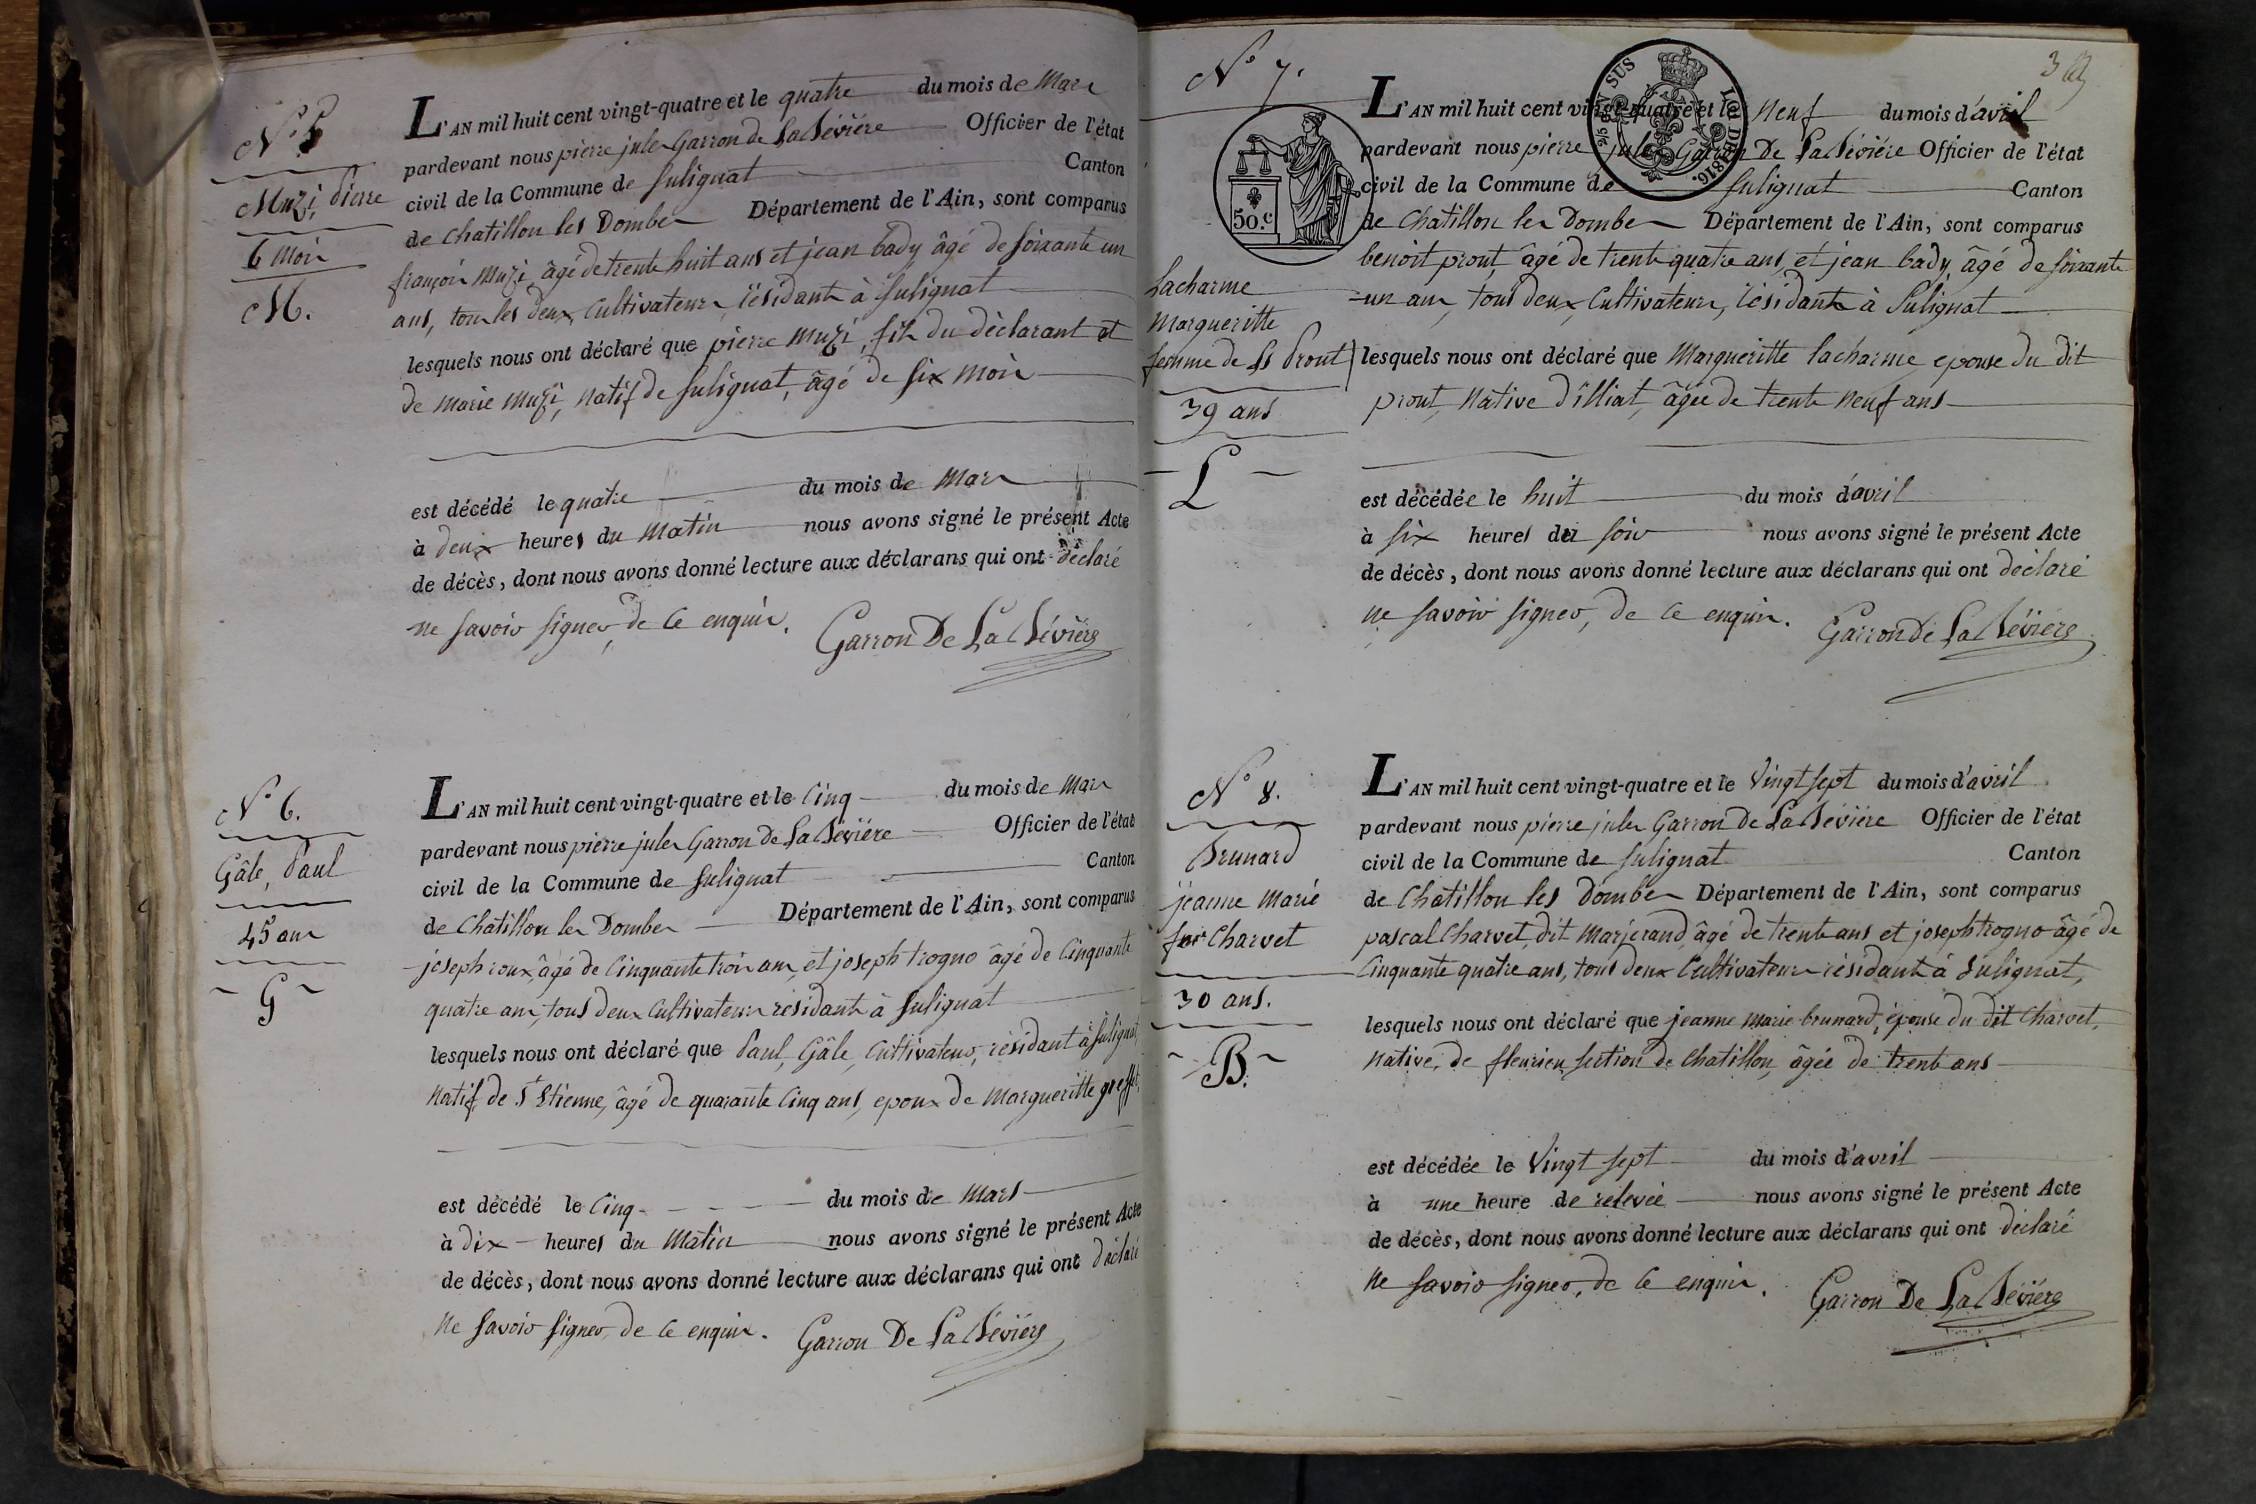 N° 5
Muzi, Pierre
6 mois
M.
L'AN mil huit cent vingt-quatre et le quatre du mois de Mars
pardevant nous pierre jules Garron de La Bévière Officier de l'état
civil de la Commune de Sulignat Canton
de Chatillon les Dombes Département de l'Ain, sont comparus
françois Muzi, âgé de trente huit ans et jean bady âgé de soixante un
ans, tous les deux, Cultivateurs, résidants à Sulignat
lesquels nous ont déclaré que pierre Muzi, fils du déclarant et
de marie Muzi, natif de Sulignat, âgé de six mois
est décédé le quatre du mois de Mars
à deux heures du Matin nous avons signé le présent Acte
de décès, dont nous avons donné lecture aux déclarans qui ont déclaré
ne savoir signer, de ce enquis. Garron De La Bévière
N° 6.
Gâle, Paul
45 ans
G
L'AN mil huit cent vingt-quatre et le Cinq du mois de Mars
pardevant nous pierre jules Garron de La Bévière Officier de l'état
civil de la Commune de Sulignat Canton
de Chatillon les Dombes Département de l'Ain, sont comparus
joseph roux, âgé de Cinquante trois ans, et joseph trogno âgé de Cinquante
quatre ans, tous deux Cultivateurs résidants à Sulignat
lesquels nous ont déclaré que Paul, Gâle, Cultivateur, résidant à Sulignat
Natif de St Etienne, âgé de quarante Cinq ans, epoux de Margueritte
est décédé le Cinq du mois de Mars
à dix heures du Matin nous avons signé le présent Acte
de décès, dont nous avons donné lecture aux déclarans qui ont déclaré
Ne savoir signer, de ce enquis. Garron De La Bévière
3
N° 7.
50.c
2/5 EN SUS
LOI DE 1816.
Lacharme
Margueritte
femme de Bt Prout
39 ans
L
L'AN mil huit cent vingt-quatre et le Neuf du mois d'avril
pardevant nous pierre jules Garron De La Bévière Officier de l'état
civil de la Commune de Sulignat Canton
de Chatillon les Dombes Département de l'Ain, sont comparus
benoit prout, âgé de trente quatre ans, et jean bady, âgé de soixante
un ans, tous deux, Cultivateurs, résidants à Sulignat
lesquels nous ont déclaré que Margueritte lacharme epouse du dit
prout, Native d'illiat, âgée de trente Neuf ans
est décédée le huit du mois d'avril
à six heures du soir nous avons signé le présent Acte
de décès, dont nous avons donné lecture aux déclarans qui ont déclaré
ne savoir signer, de ce enquis. Garron De La Bévière
N° 8.
Brunard
jeanne Marie
Charvet
30 ans.
B.
L'AN mil huit cent vingt-quatre et le Vingt sept du mois d'avril
pardevant nous pierre jules Garron De La Bévière Officier de l'état
civil de la Commune de Sulignat Canton
de Chatillon les Dombes Département de l'Ain, sont comparus
pascal Charvet, dit Marjerand, âgé de trente ans et joseph trogno âgé de
Cinquante quatre ans, tous deux Cultivateurs résidants à Sulignat,
lesquels nous ont déclaré que jeanne Marie brunard, épouse du dit Charvet,
native, de fleurieu section de Chatillon, âgée de trente ans
est décédée le Vingt sept du mois d'avril
à une heure de relevée nous avons signé le présent Acte
de décès, dont nous avons donné lecture aux déclarans qui ont déclaré
Ne savoir signer, de ce enquis. Garron De La Bévière